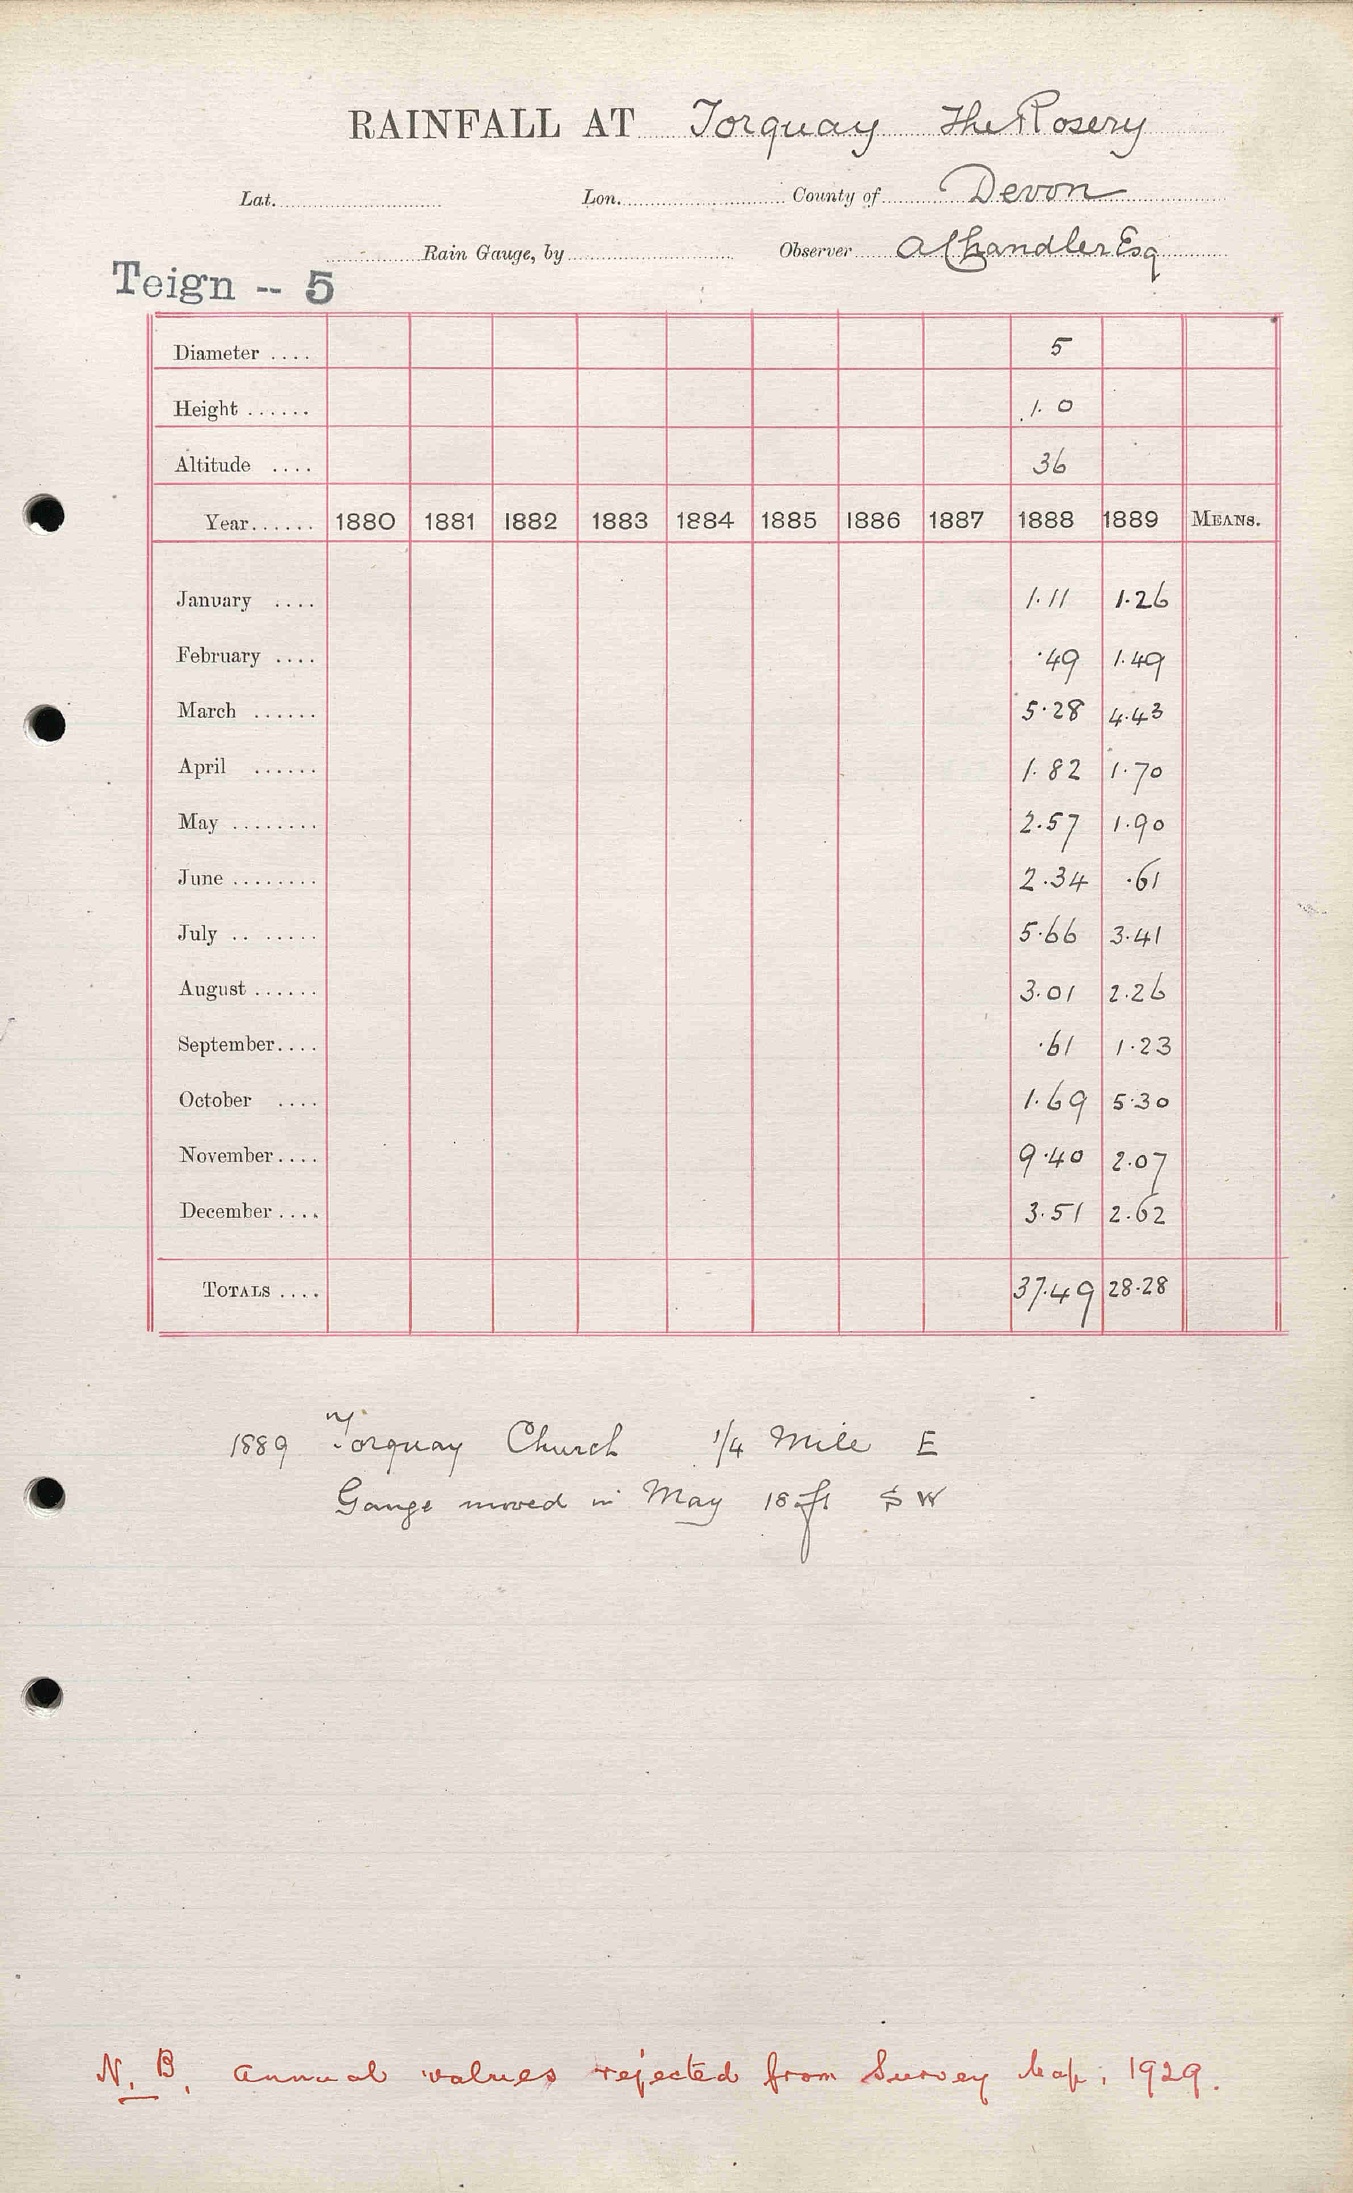 RAINFALL AT Torquay The Rosery
Lat. Lon. County of Devon
Rain Gauge, by Observer A Chandler Esq
Teign -- 5
Diameter .... 5
Height ...... 1. 0
Altitude .... 36
Year...... 1880 1881 1882 1883 1884 1885 1886 1887 1888 1889 MEANS.
January .... 1.11 1.26
February .... .49 1.49
March ...... 5.28 4.43
April ...... 1.82 1.70
May ........ 2.57 1.90
June ........ 2.34 .61
July .. ..... 5.66 3.41
August ...... 3.01 2.26
September.... .61 1.23
October .... 1.69 5.30
November.... 9.40 2.07
December .... 3.51 2.62
TOTALS .... 37.49 28.28
1889 Torquay Church 1/4 Mile E
Gauge moved in May 18 ft S W
N. B. Annual values rejected from Survey Map, 1929.